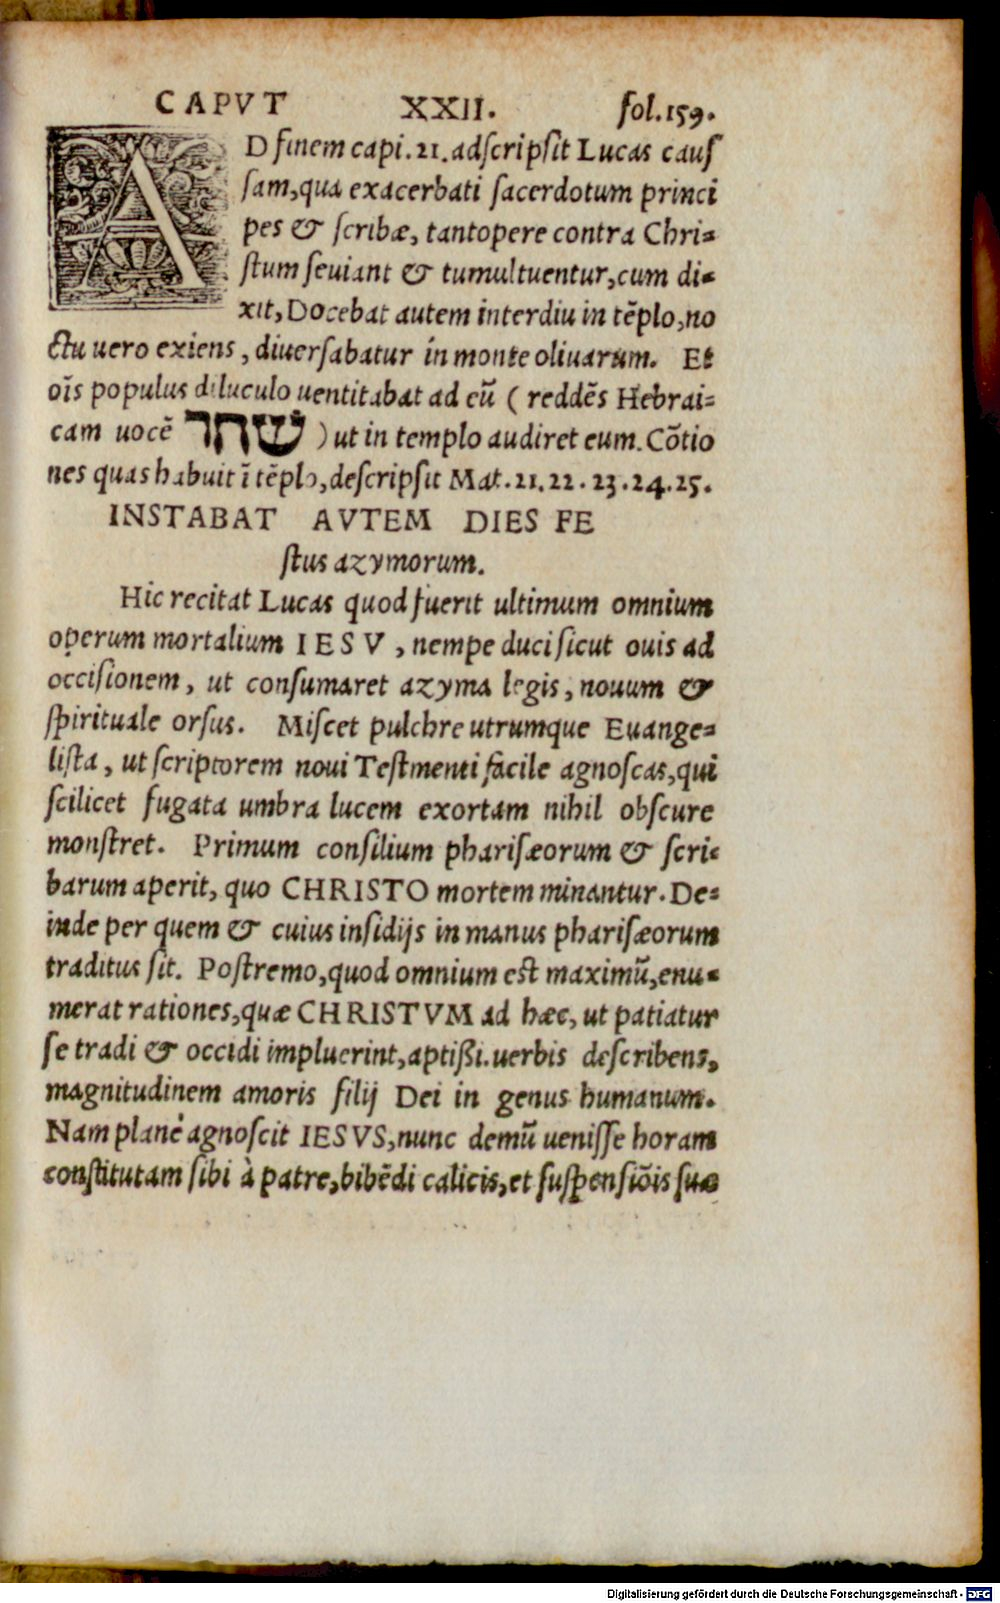 CAPVT XXII. fol.159.
AD finem capi.21.adscripsit Lucas caus
sam,qua exacerbati sacerdotum princi
pes & scribæ, tantopere contra Chri=
stum seuiant & tumultuentur,cum di=
xit,Docebat autem interdiu in tēplo,no
ctu uero exiens, diuersabatur in monte oliuarum. Et
oīs populus diluculo uentitabat ad eū ( reddēs Hebrai=
cam uocē שחר ) ut in templo audiret eum. Cōtio
nes quas habuit ī tēplo,descripsit Mat.21.22.23.24.25.
INSTABAT AVTEM DIES FE
stus azymorum.
Hic recitat Lucas quod fuerit ultimum omnium
operum mortalium IESV, nempe duci sicut ouis ad
occisionem, ut consumaret azyma legis, nouum &
spirituale orsus. Miscet pulchre utrumque Euange=
lista, ut scriptorem noui Testmenti facile agnoscas,qui
scilicet fugata umbra lucem exortam nihil obscure
monstret. Primum consilium pharisæorum & scri=
barum aperit, quo CHRISTO mortem minantur. De=
inde per quem & cuius insidijs in manus pharisæorum
traditus sit. Postremo,quod omnium est maximū,enu=
merat rationes,quæ CHRISTVM ad hæc, ut patiatur
se tradi & occidi impluerint,aptißi.uerbis describens,
magnitudinem amoris filij Dei in genus humanum.
Nam planè agnoscit IESVS,nunc demū uenisse horam
constitutam sibi à patre,bibēdi calicis,et suspensiōis suæ
Digitalisierung gefördert durch die Deutsche Forschungsgemeinschaft - DFG